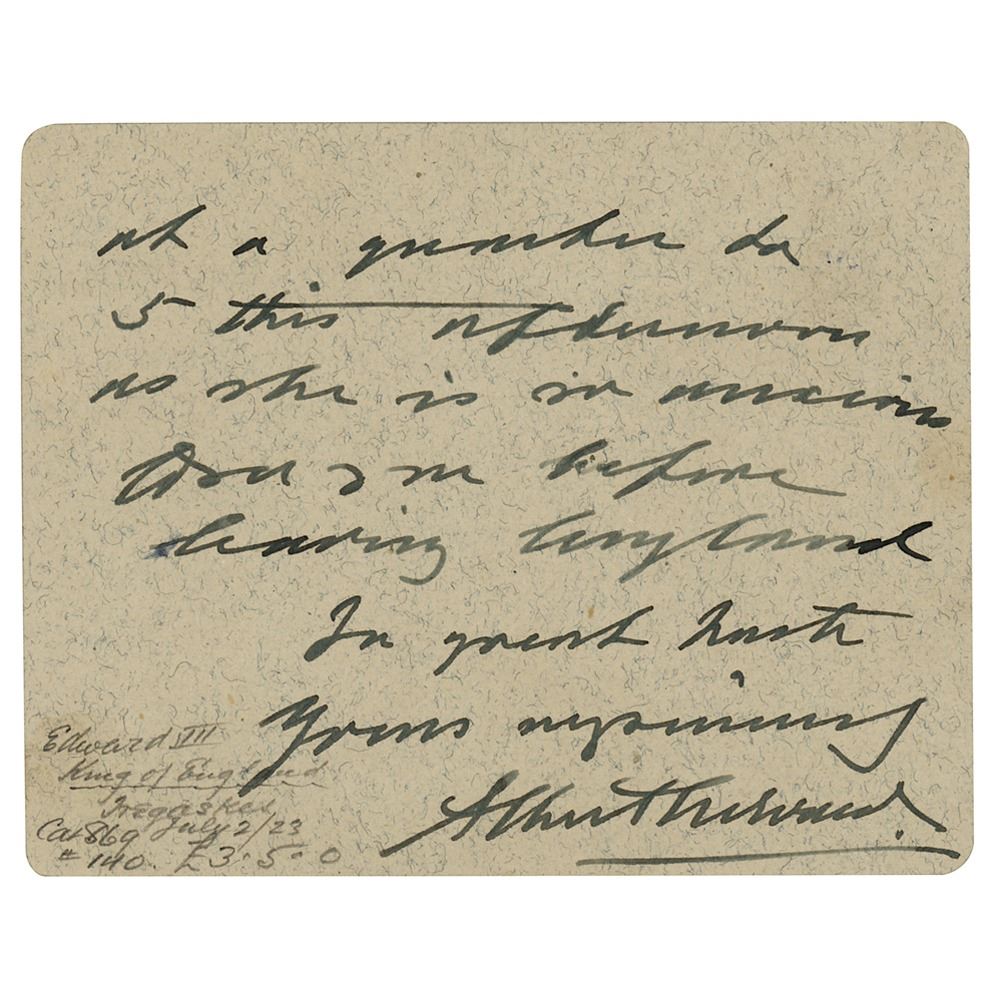 at a quarter to
5 this afternoon
as she is so anxious
to see me before
leaving England
In great haste
Yours
Albert Edward
Edward VII
King of England
Tregaskis
Cat 869 July 2/23
# 140. £3.5.0